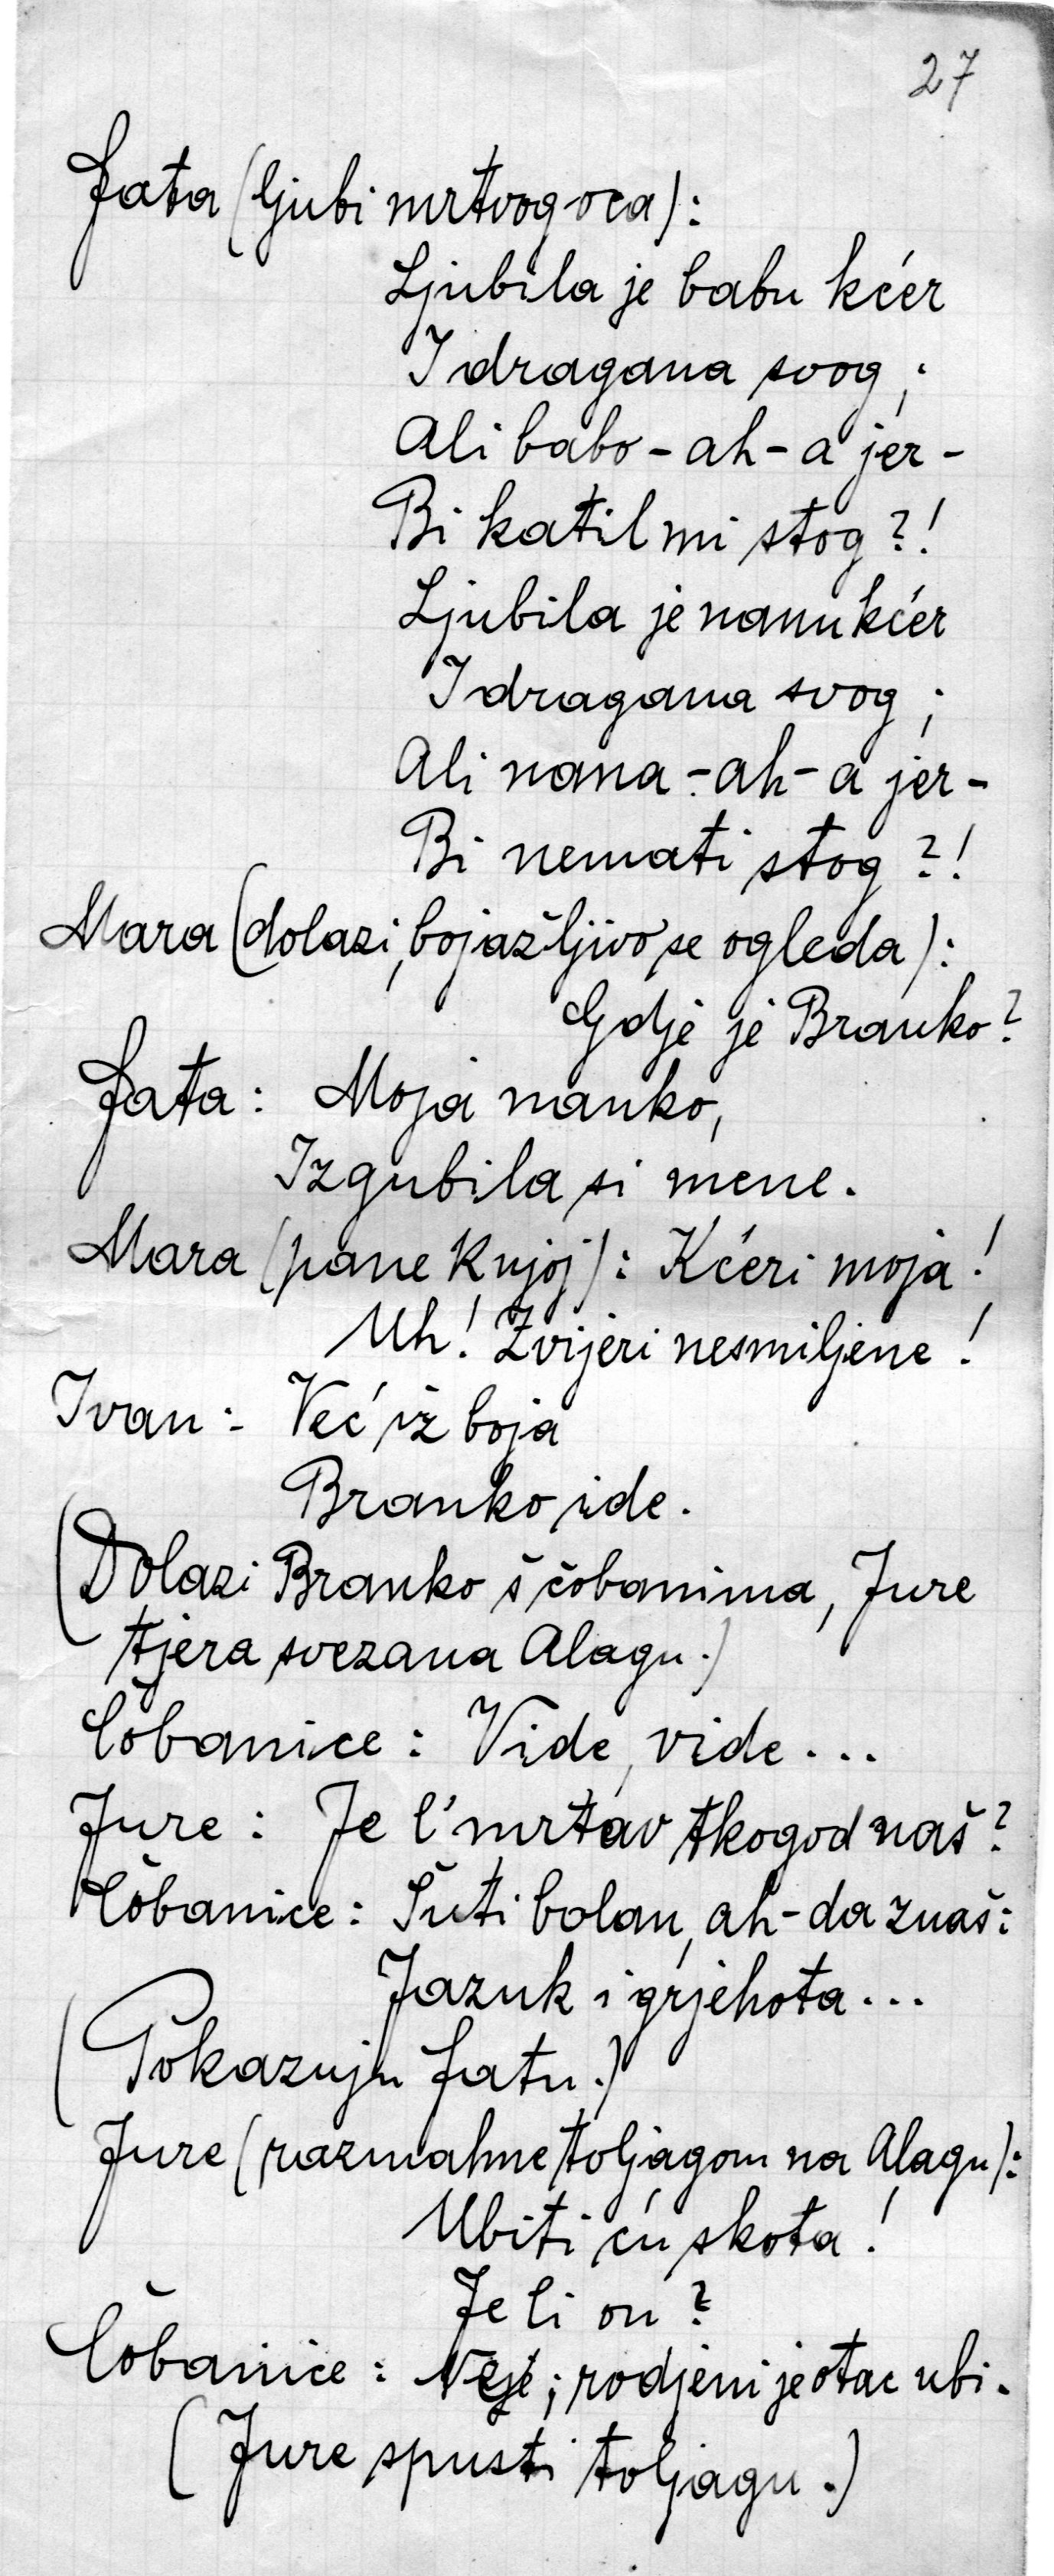 27
Fata (ljubi mrtvog oca):
Ljubila je babu kćer
I dragana svog;
Ali babo - ah - a jer -
Bi katil mi stog?!
Ljubila je nanu kćer
I dragana svog;
Ali nana - ah - a jer -
Bi nemati stog?!
Mara (dolazi, bojažljivo se ogleda):
Gdje je Branko?
Fata: Moja nanko,
Izgubila si mene.
Mara (pane k njoj): Kćeri moja!
Uh! Zvijeri nesmiljene!
Ivan: Već iž boja
Branko ide.
(Dolazi Branko š čobanima, Jure
tjera svezana Alagu.)
Čobanice: Vide, vide...
Jure: Je l' mrtav tkogod naš?
Čobanice: Šuti bolan, ah - da znaš:
Jazuk i grjehota...
(Pokazuju Fatu.)
Jure (razmahne toljagom na Alagu):
Ubiti ću skota!
Je li on?
Čobanice: Neje; rodjeni je otac ubi.
(Jure spusti toljagu.)